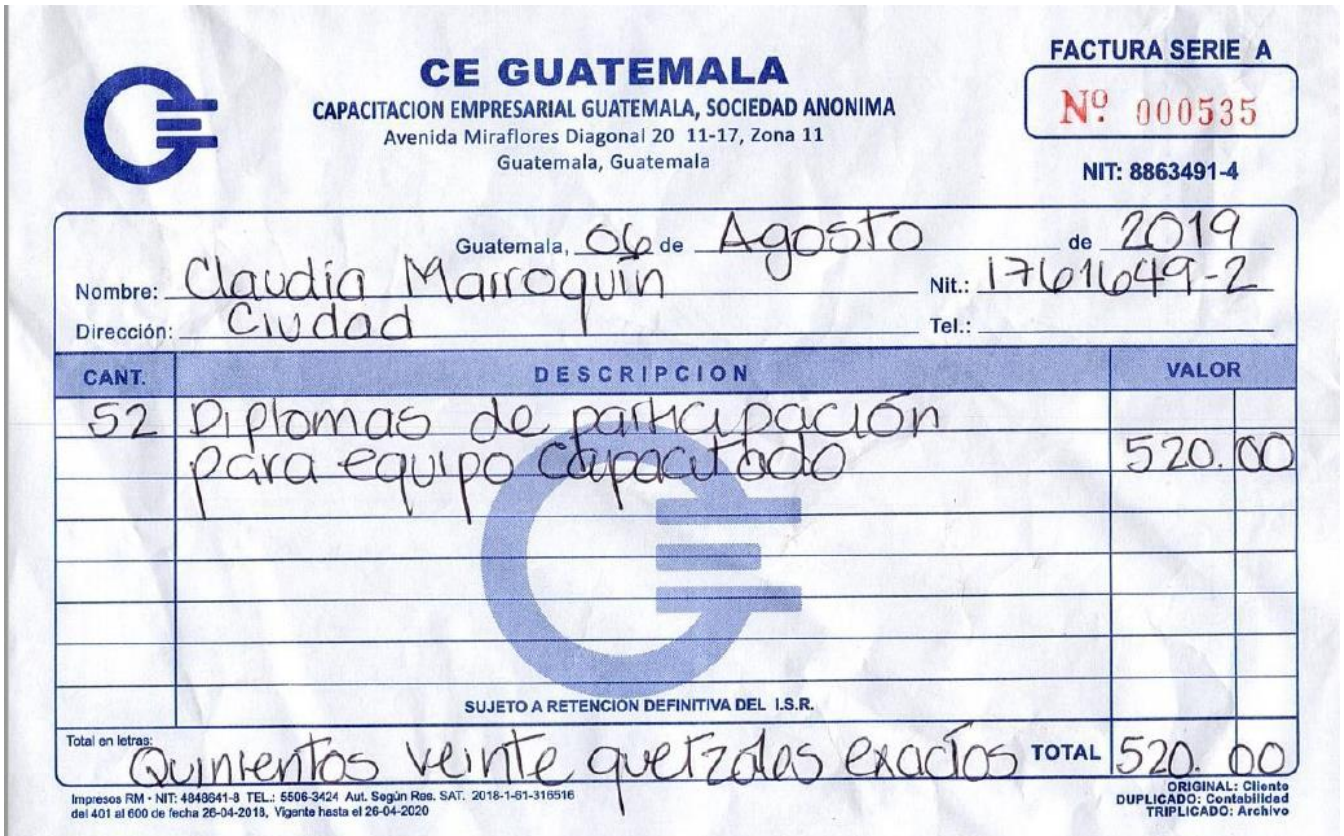 CE GUATEMALA
CAPACITACION EMPRESARIAL GUATEMALA, SOCIEDAD ANONIMA
Avenida Miraflores Diagonal 20 11-17, Zona 11
Guatemala, Guatemala
FACTURA SERIE A
Nº 000535
NIT: 8863491-4
Guatemala, 06 de Agosto de 2019
Nombre: Claudia Marroquín Nit.: 1761649-2
Dirección: Ciudad Tel.:
CANT. DESCRIPCION VALOR
52 Diplomas de participación
para equipo capacitado 520.00
SUJETO A RETENCION DEFINITIVA DEL I.S.R.
Total en letras: Quinientos veinte quetzales exactos TOTAL 520.00
Impresos RM - NIT: 4848641-8 TEL.: 5506-3424 Aut. Según Res. SAT. 2018-1-61-316516
del 401 al 600 de fecha 26-04-2018, Vigente hasta el 26-04-2020
ORIGINAL: Cliente
DUPLICADO: Contabilidad
TRIPLICADO: Archivo